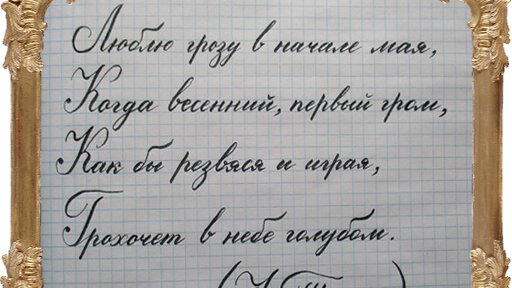 Люблю грозу в начале мая,
Когда весенний, первый гром,
Как бы резвяся и играя,
Грохочет в небе голубом.